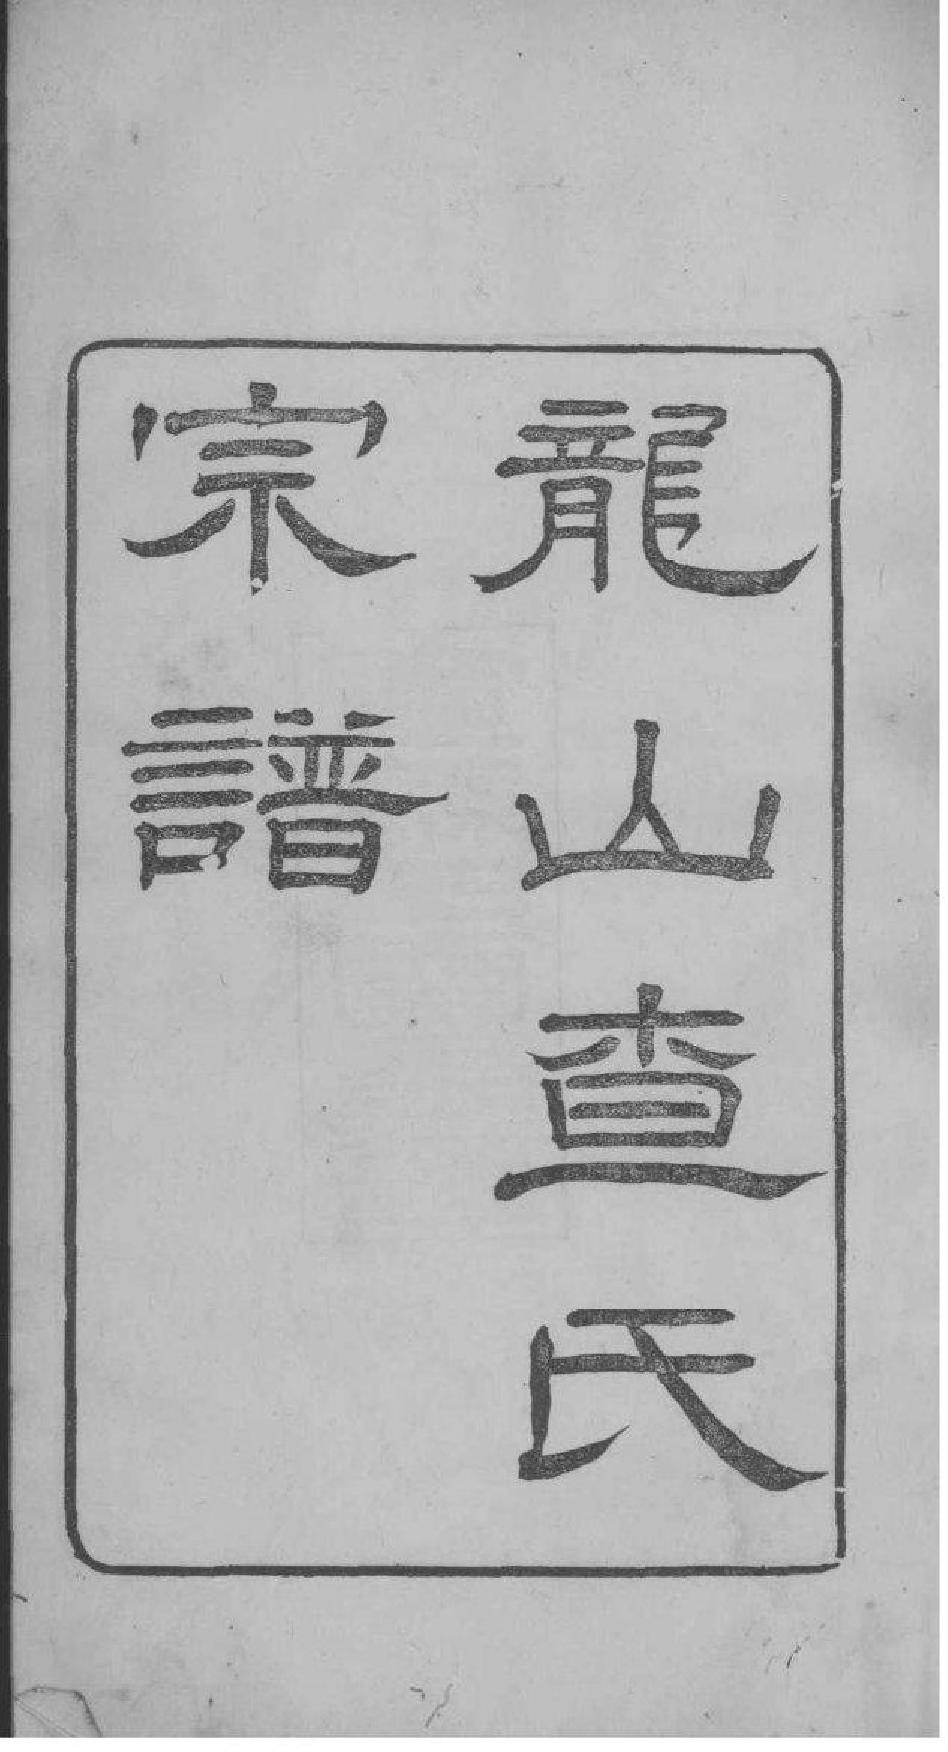 龍山查氏
宗譜